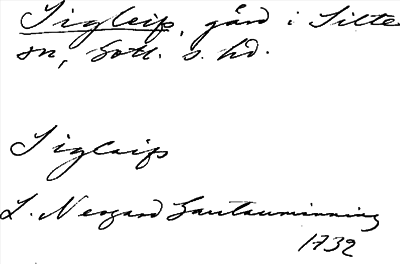 Sigleifs, gård i Silte
sn, Gotl. s. hd.
Siglaifs
L. Nergard Gautauminning
1732